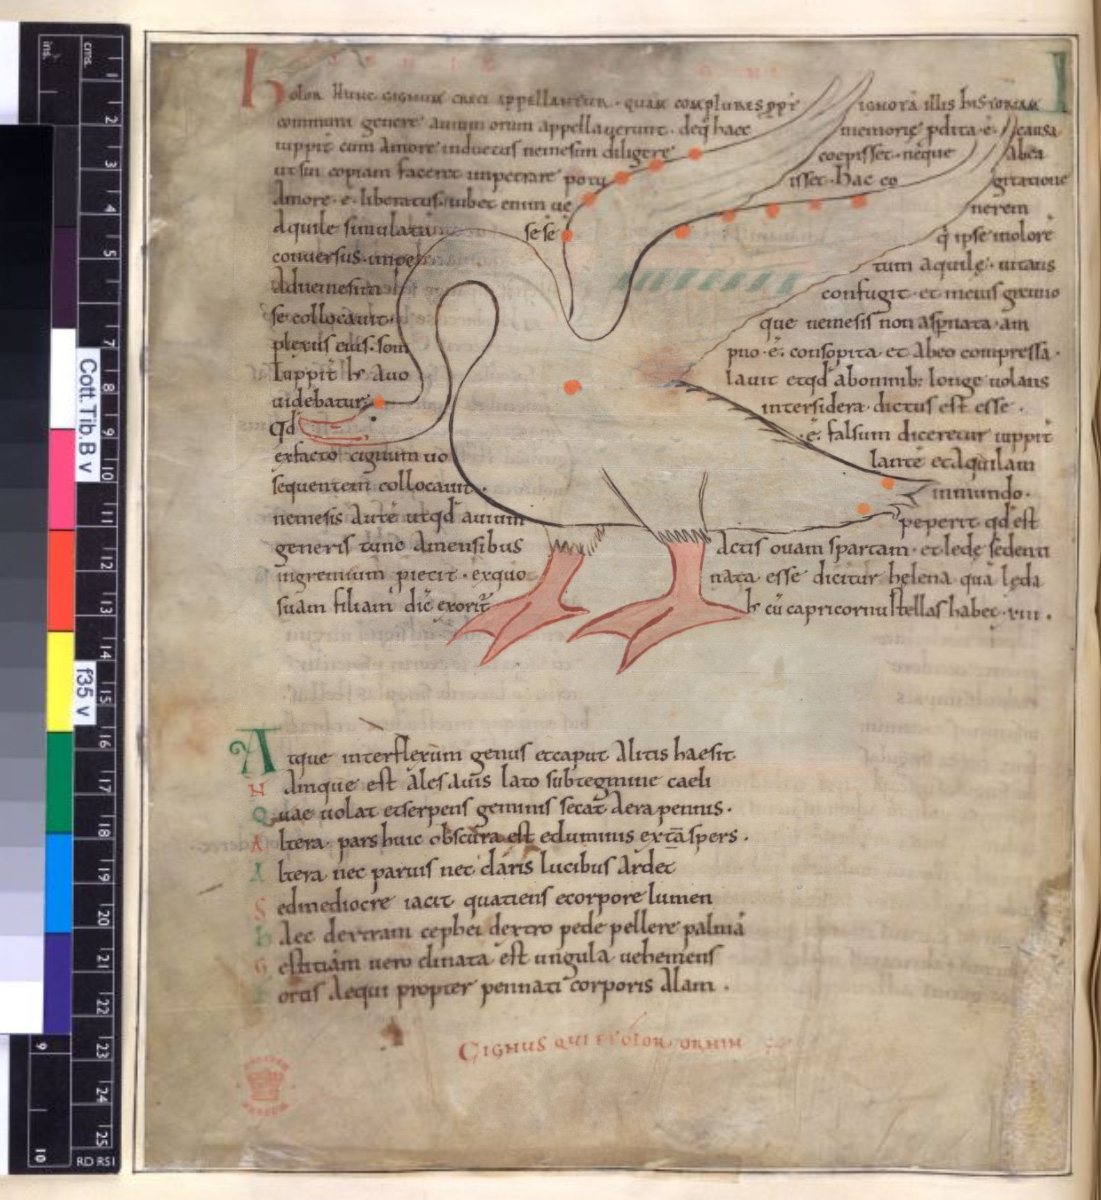 holor hunc cignum greci appellantur · quam complures ppt ignota illis historiam
communi genere auium orum appellauerunt · deq haec memorię pdita ē · causa
iuppit cum Amore inductus nemesim diligere coepisset · neque Abea
utsui copiam faceret impetrare potu isset · hac co gitatione
Amore · e · liberatus · iubet enim ue nerem
Aquile simulatu sese q ipse inolore
conuersus · tum aquile · uitans
Adnemesim confugit · et meius gremio
se collocauit · que nemesis non aspnata · am
plexus eius · som pno · ē · consopita · et Abeo compressa ·
Iuppit Auo lauit etqd abomnib: longe uolans
uidebatur intersidera · dictus est esse ·
qd · ē · falsum diceretur iuppit
exfacto cignum uo lante etAquilam
sequentem collocauit · inmundo ·
nemesis Aute utqd auium peperit qd est
generis tunc Amensibus Actis ouam spartam · et lede sedenti
ingremium piecit · exquo nata esse dicitur helena qua leda
suam filiam dic exorit h cu capricornu stellas habet · xiii ·
Atque interflexum genus etcaput Alitis haesit
NAmque est Ales auis lato subtegmine caeli
Quae uolat etserpens geminis secat Aera pennis ·
Altera pars huic obscura est eduminis extaspers ·
Altera nec paruis nec claris lucibus Ardet
Sedmediocre iacit quatiens ecorpore lumen
hAec dextram cephei dextro pede pellere palma
Gestitiam uero clinata est ungula uehemens
Fortis Aequi propter pennati corporis Alam ·
CIGNUS QUI ET OLOR
cms.
ins.
1
2
3
4
5
7
8
9
10
11
12
13
14
15
16
17
18
19
20
21
22
23
24
25
9
10
RD RS1
Cott.Tib.B v
f35 v